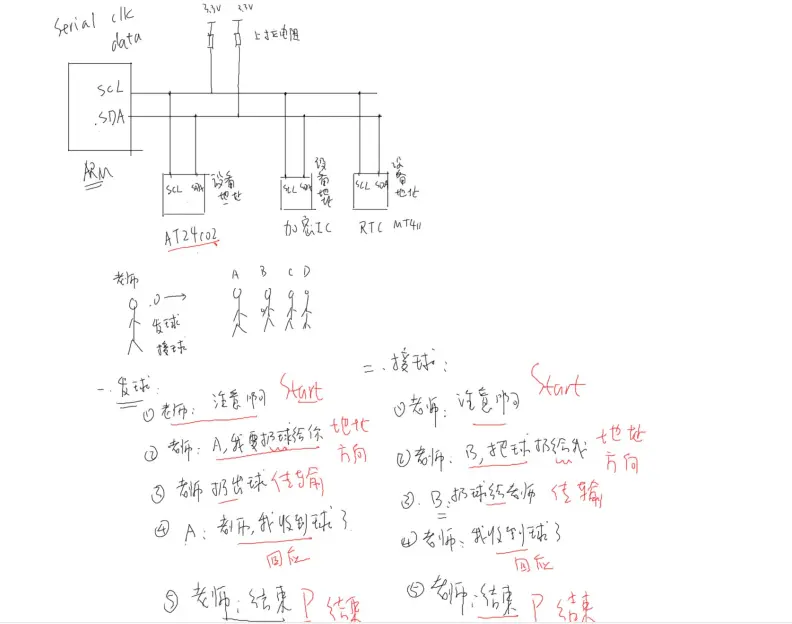 Serial clk
data
3.3V 3.3V
上拉电阻
SCL
SDA
ARM
SCL SDA 设备地址
SCL SDA 设备地址
SCL SDA 设备地址
AT24C02
加密IC
RTC
老师
A B C D
发球
接球
一. 发球:
①老师: 注意啊 Start
②老师: A,我要扔球给你 地址 方向
③老师扔出球 传输
④A: 老师,我收到球了
回应
⑤老师: 结束 P 结束
二. 接球:
①老师: 注意啊 Start
②老师: B,把球扔给我 地址 方向
③. B:扔球给老师 传输
④老师:我收到球了
回应
⑤老师:结束 P 结束